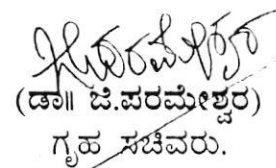 (ಡಾ॥ ಜಿ.ಪರಮೇಶ್ವರ)
ಗೃಹ ಸಚಿವರು.